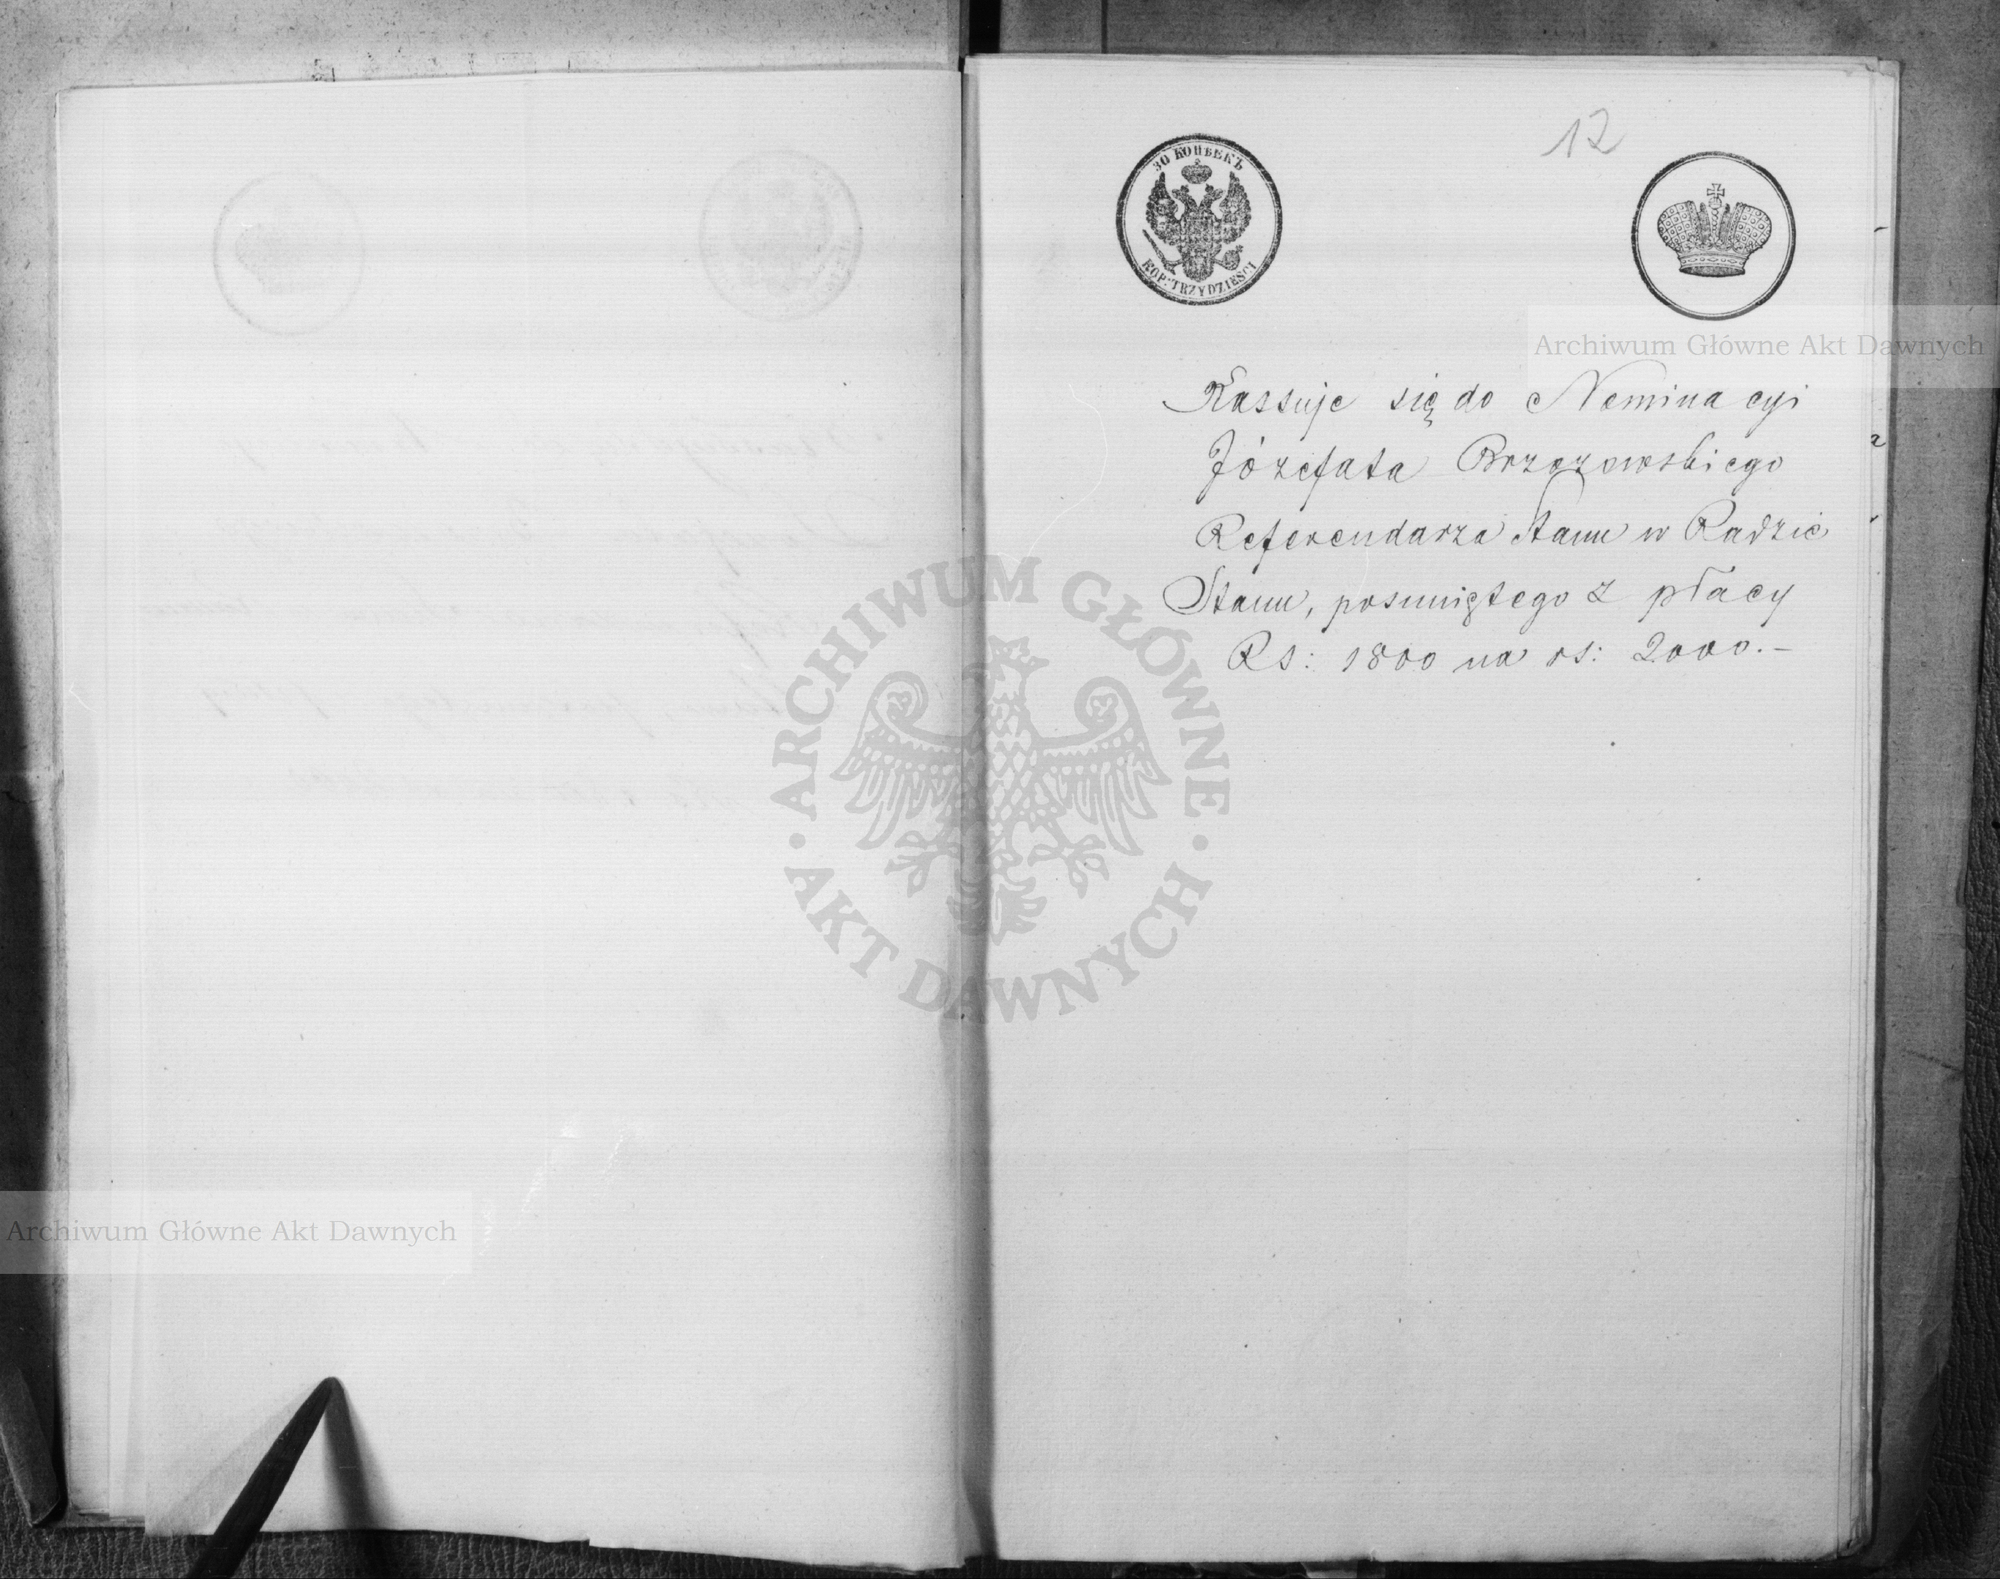 12
30 КОПѢЕКЪ
KOP: TRZYDZIEŚCI
Archiwum Główne Akt Dawnych
Kassuje się do Nominacyi
Józefata Brzozowskiego
Referendarza Stanu w Radzie
Stanu, posuniętego z płacy
Rs: 1800 na rs: 2000.–
ARCHIWUM GŁÓWNE
AKT DAWNYCH
Archiwum Główne Akt Dawnych